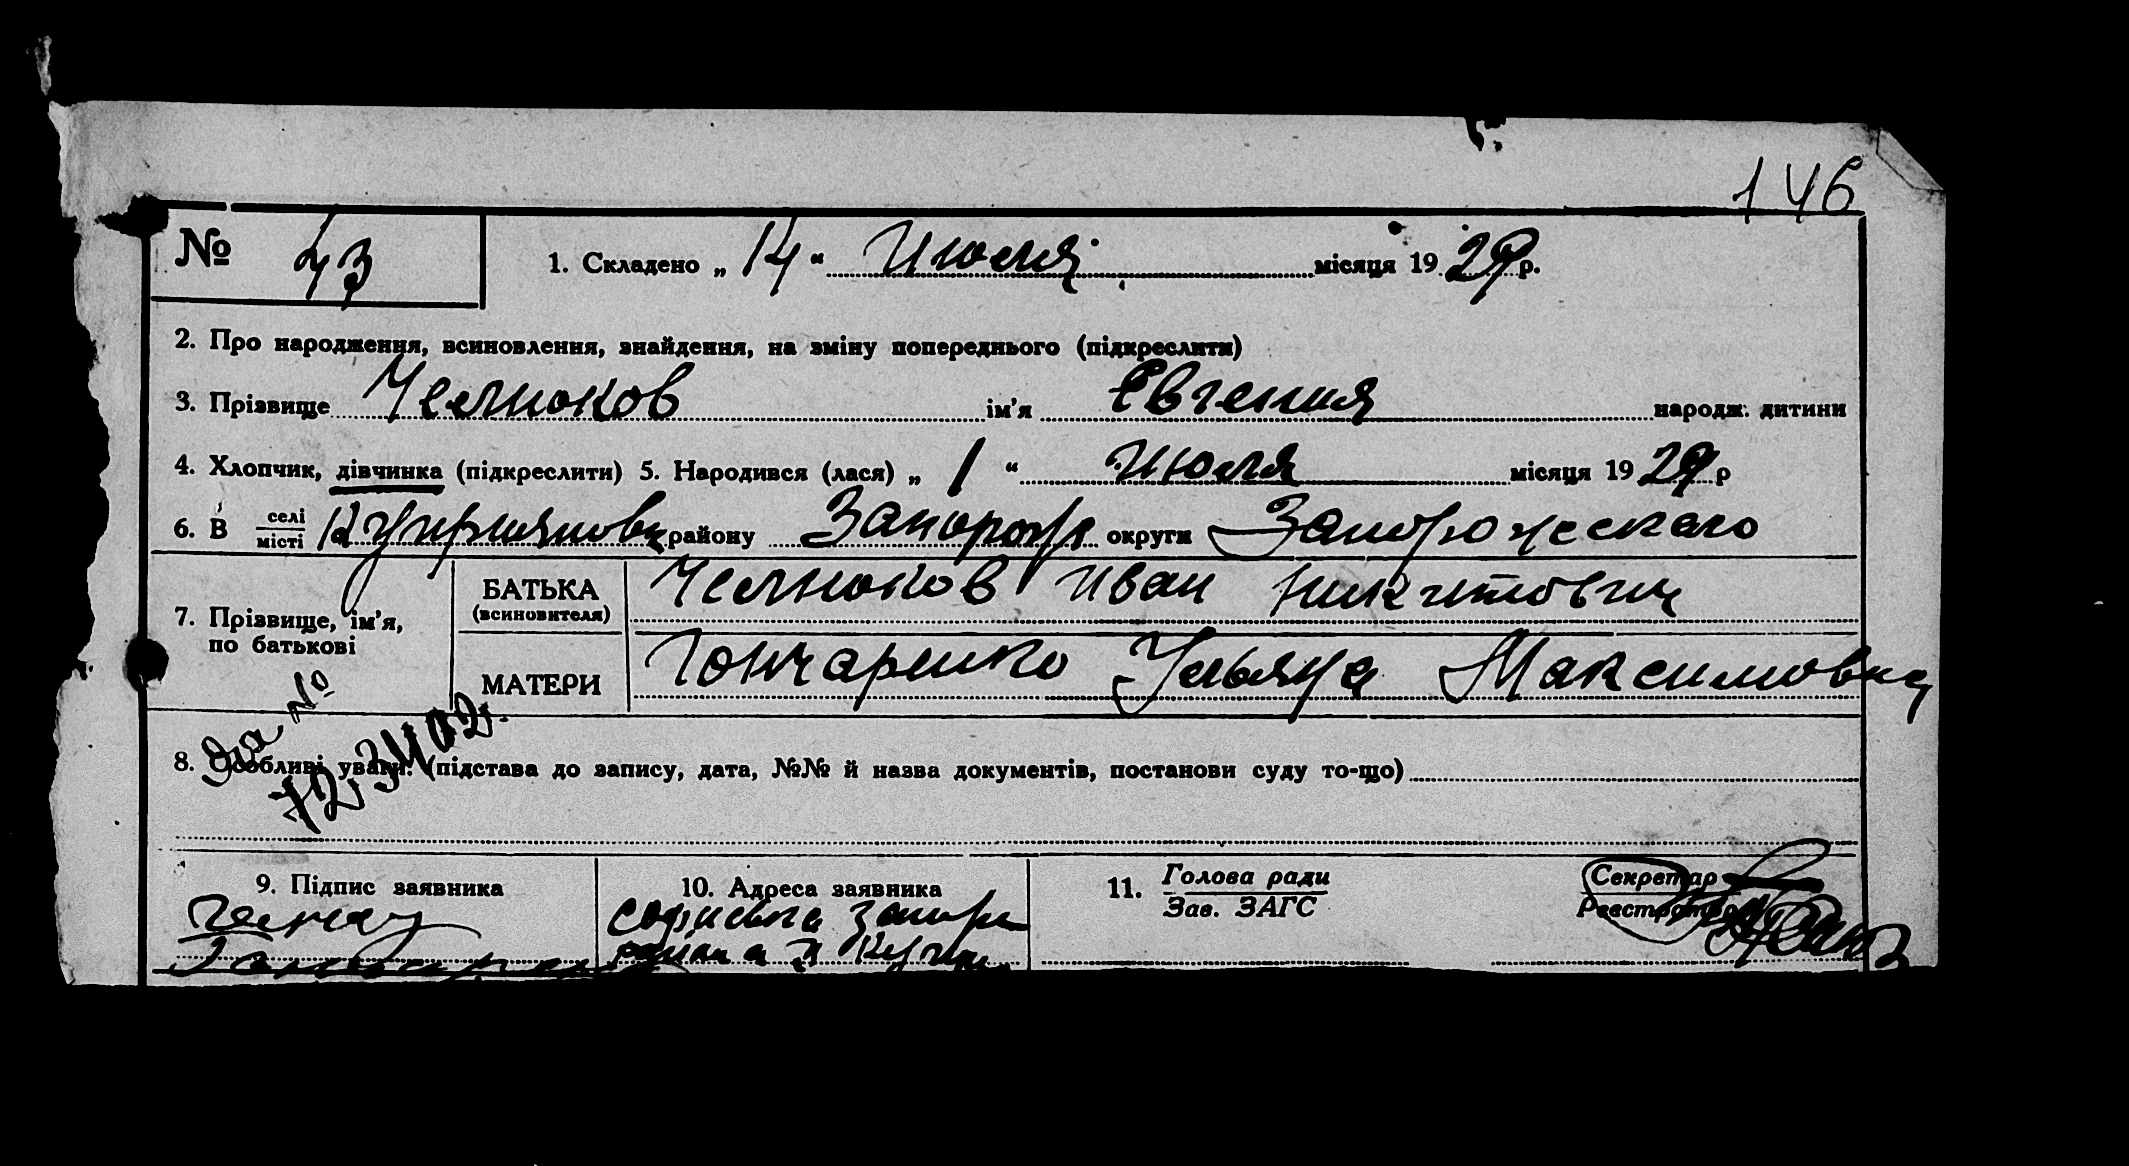 146
№ 43 1. Складено „ 14 “ Июля місяця 1929 р.
2. Про народження, всиновлення, знайдення, на зміну попереднього (підкреслити)
3. Прізвище Челноков ім’я Евгения народж. дитини
4. Хлопчик, дівчинка (підкреслити) 5. Народився (лася) „ 1 “ июля місяця 1929 р
6. В селі місті району Запорож округи Запорожескаго
7. Прізвище, ім’я, по батькові
БАТЬКА (всиновителя) Челноков Иван Никитович
МАТЕРИ Гончаренко Ульяна Максимовна
№
8. Особливі уваги: (підстава до запису, дата, №№ й назва документів, постанови суду то-що)
9. Підпис заявника
10. Адреса заявника
11. Голова ради
Зав. ЗАГС
Секретар
Реєстратор